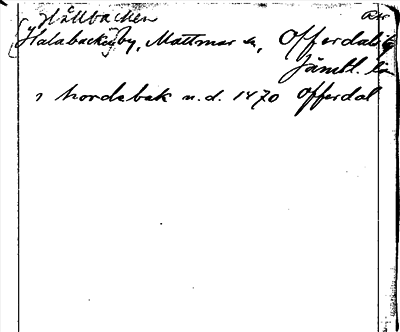 Hållbacken
Halabacken by, Mattmar sn, Offerdals tg
Jämtl. län
i hordabok n.d. 1470 Offerdal